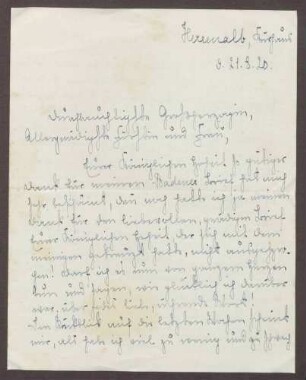 Herrenalb, Kurhaus
d. 21.8.20.
Durchlauchtigste Großherzogin,
Allergnädigste Fürstin und Frau,
Eurer Königlichen Hoheit so gütiger
Dank für meinen Badener Brief hat mich
sehr beschämt, denn noch hatte ich ja meinen
Dank für den liebevollen, gnädigen Brief
Eurer Königlichen Hoheit der sich mit dem
meinigen gekreuzt hatte, nicht ausgesprochen!
Darf ich es nun von ganzem Herzen
tun und sagen, wie glücklich ich darüber
war, über jedes liebe, Wort!
Im Rückblick auf die letzten Wochen scheint
mir, als hab ich viel zu wenig und zu schwach